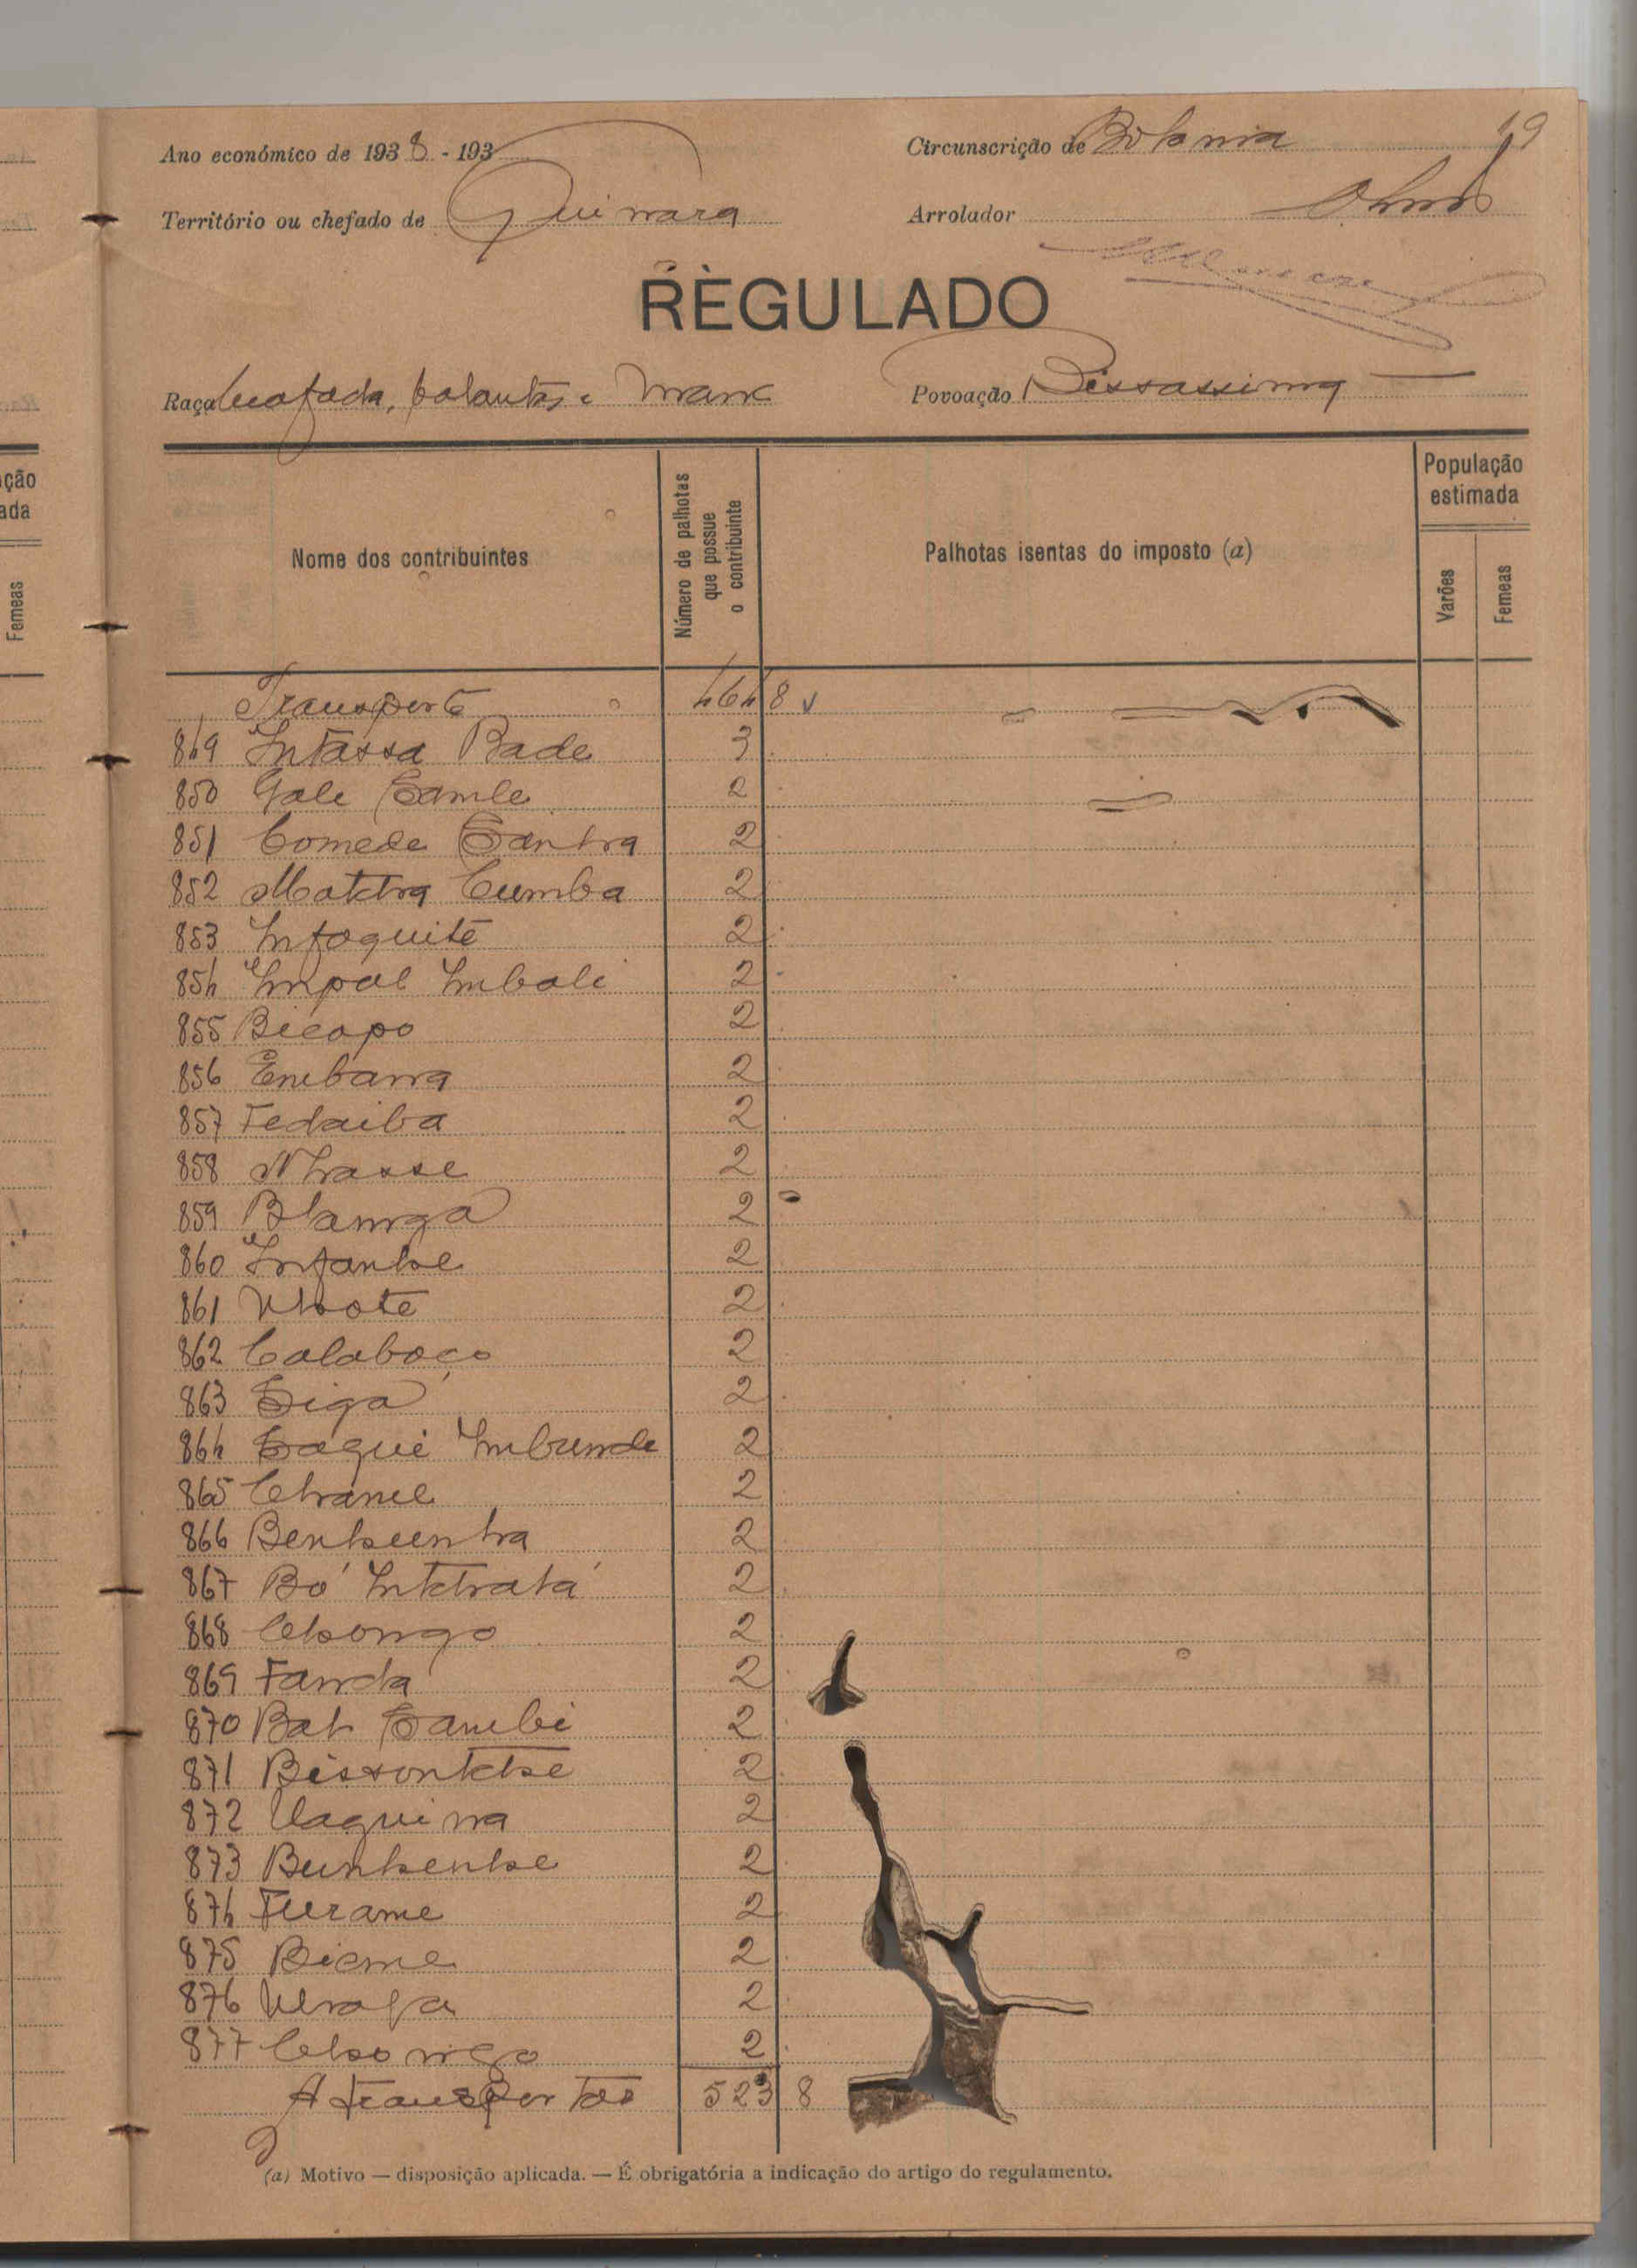 19
Ano económico de 1938 - 193
Circunscrição de Bolama
Território ou chefado de Quinara
Arrolador
REGULADO
Raça Beafada, balantas e Manc
Povoação Bissassima
Nome dos contribuintes
Número de palhotas que possue o contribuinte
Palhotas isentas do imposto (a)
População estimada
Varões
Femeas
Transporte 464 8
849 Intassa Bade 3
850 Gale Camle 2
851 Comede Santra 2
852 Maktra Cumba 2
853 Infaquite 2
854 Impal Imbali 2
855 Bicapo 2
856 Embana 2
857 Fedaiba 2
858 N'hasse 2
859 Blanga 2
860 Infantse 2
861 2
862 Calaboço 2
863 Siga 2
864 Saqui Imbunde 2
865 2
866 2
867 Bó 2
868 2
869 Fanda 2
870 Bat Sambi 2
871 2
872 Uaquina 2
873 2
874 Furame 2
875 Bieme 2
876 2
877 2
A transportar 523 8
(a) Motivo — disposição aplicada. — É obrigatória a indicação do artigo do regulamento.
ção
ada
Femeas